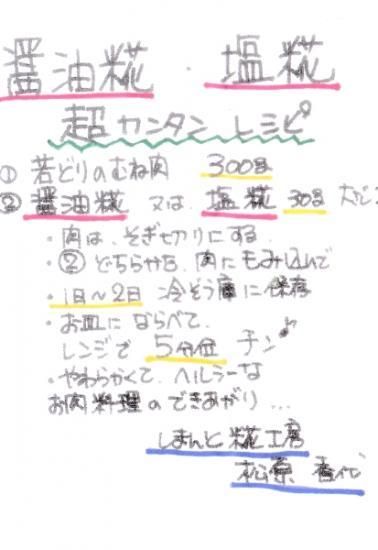 醤油糀・塩糀
超カンタンレシピ
① 若どりのむね肉 300g
② 醤油糀 又は 塩糀 30g
・肉は、そぎ切りにする
・②どちらかを、肉にもみ込んで
・1日~2日 冷ぞう庫に保存
・お皿にならべて、
レンジで 5分位 チン♪
・やわらかくて、ヘルシーな
お肉料理のできあがり...
しまんと糀工房
松原 香代